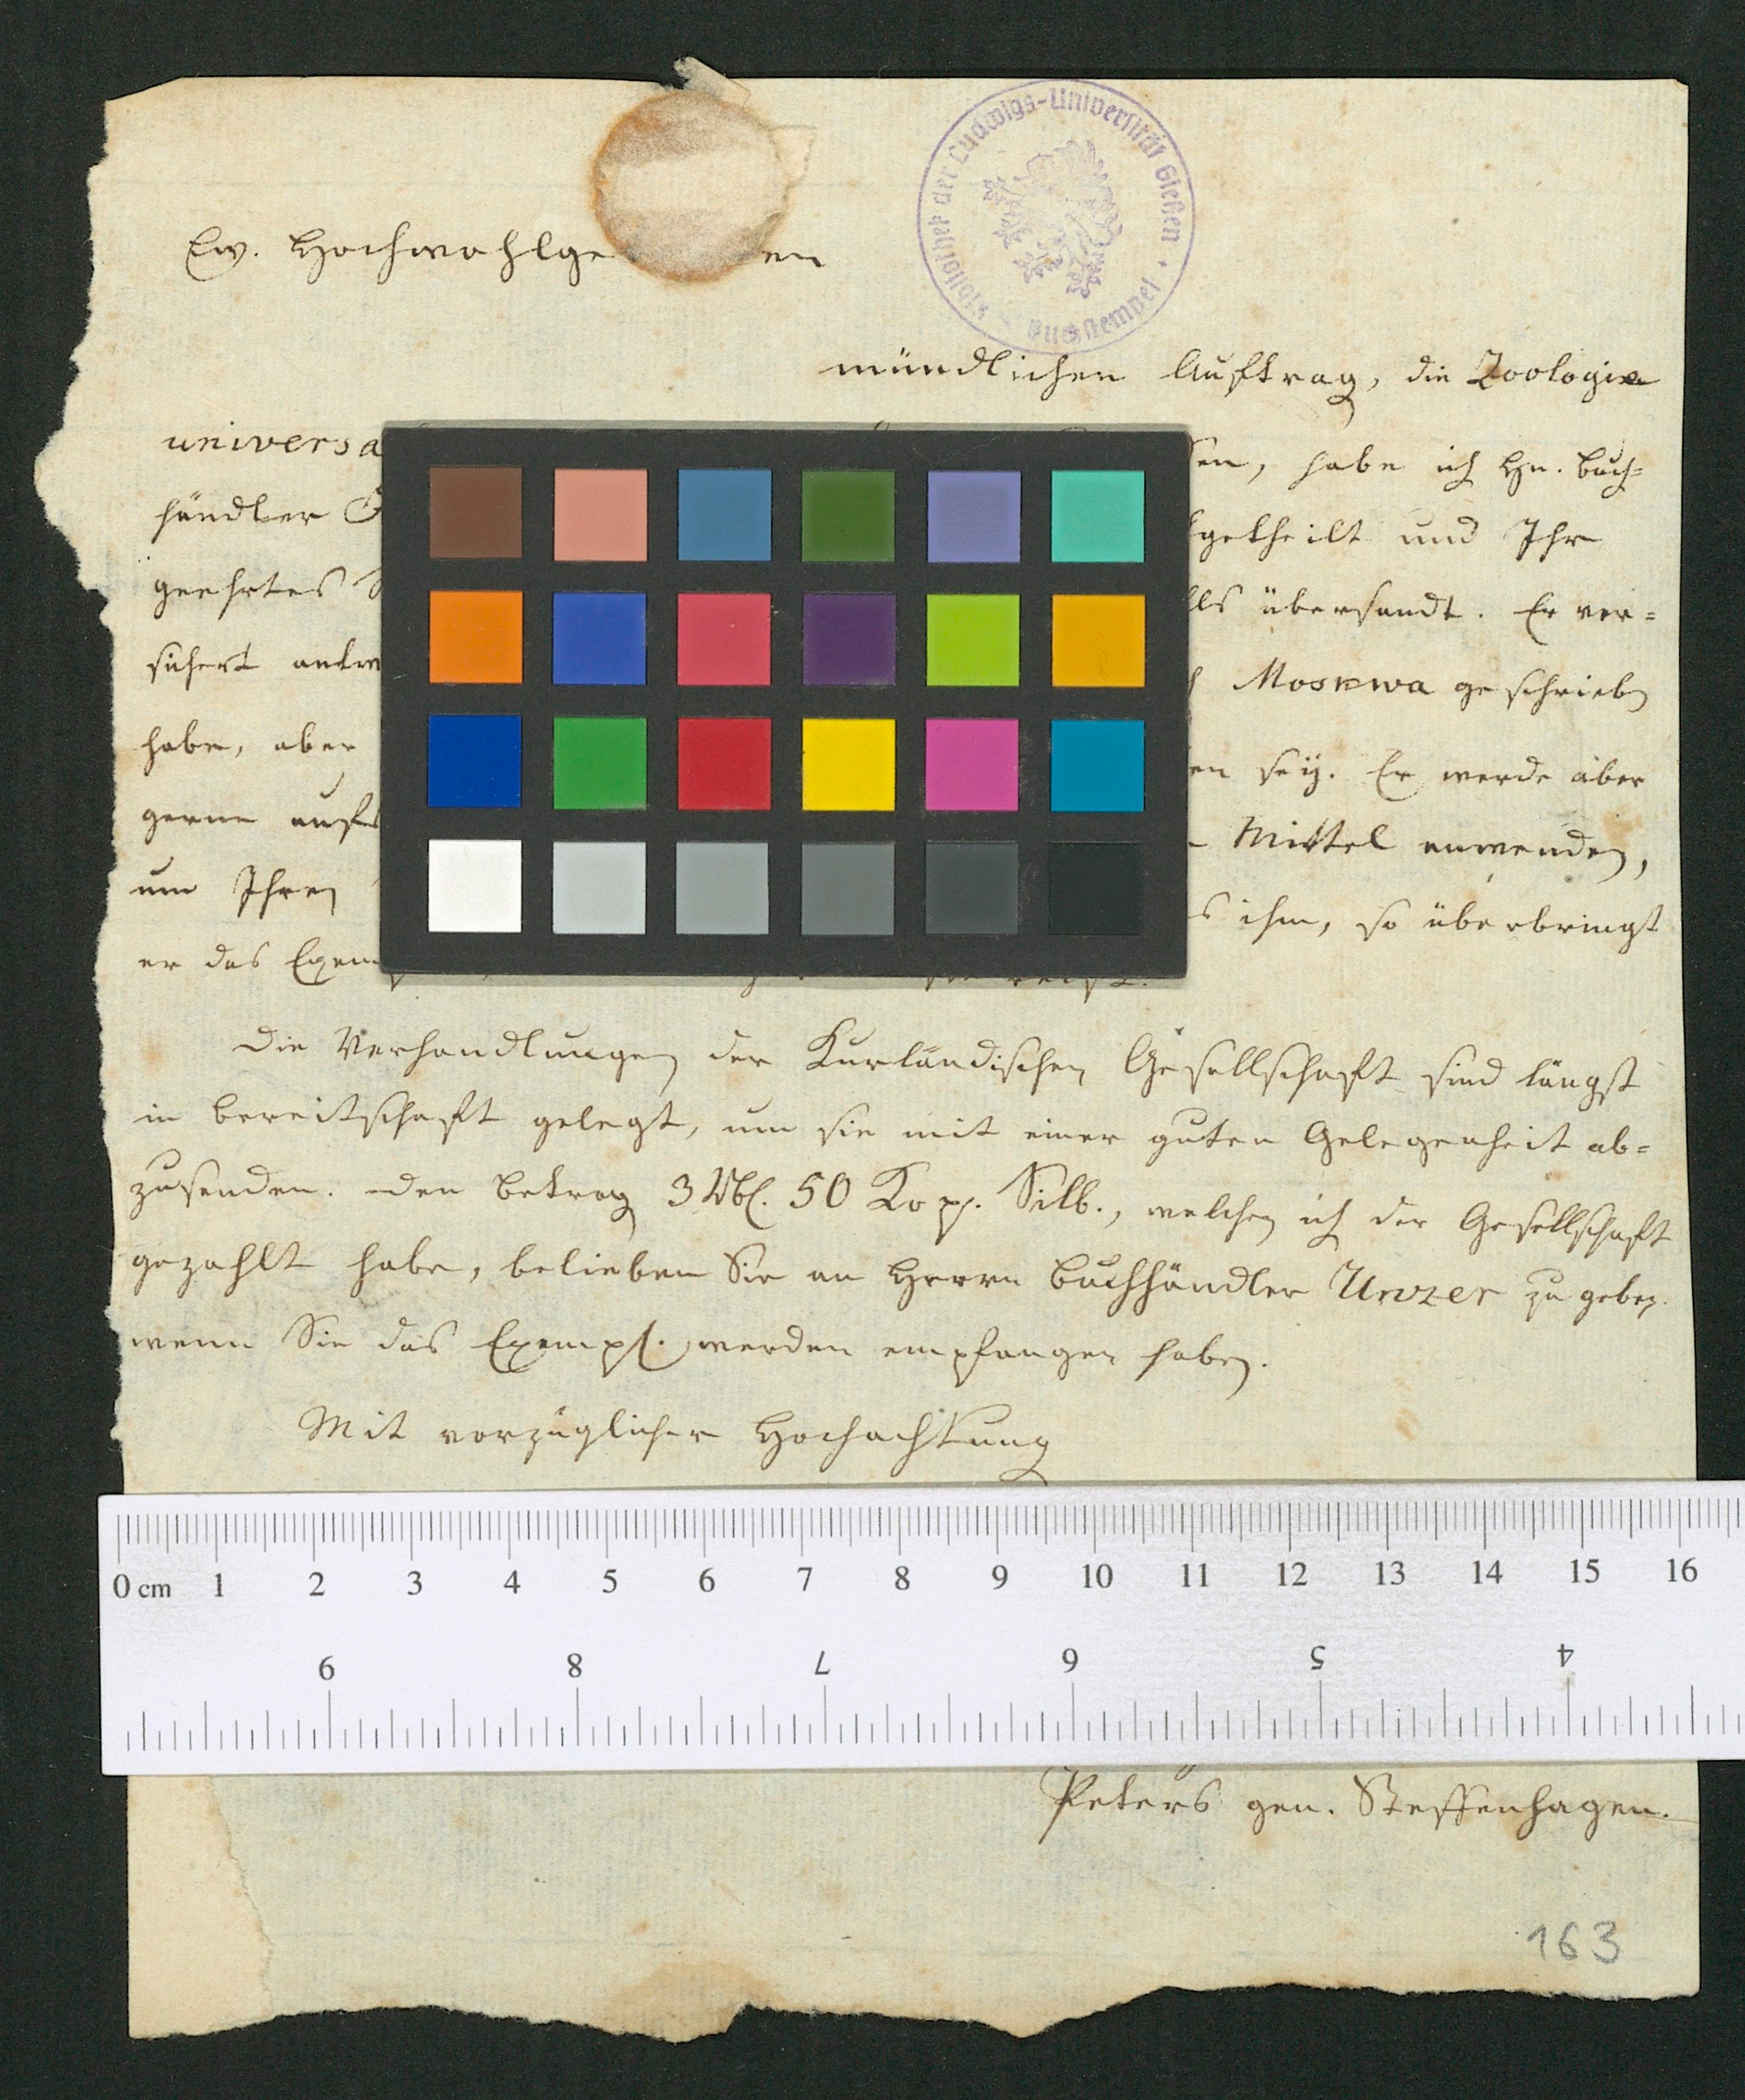 Bibliothek der Ludwigs-Universität Gießen
Ew. Hochwohlge en
mündlichen Auftrag, die Zoologia
universa en, habe ich Hn. Buch=
händler getheilt und Ihr
geehrtes übersandt. Er ver=
sichert Moskwa geschrieben
habe, aber en sey. Er werde aber
gerne Mittel anwenden,
um Ihren ihm, so überbringt
er das Exem
Die Verhandlungen der Kurländischen Gesellschaft sind längst
in Bereitschaft gelegt, um sie mit einer guten Gelegenheit ab=
zusenden. Den Betrag 3 Rbl. 50 Kop. Silb., welchen ich der Gesellschaft
gezahlt habe, belieben Sie an Herrn Buchhändler Unzer zu geben.
wenn Sie das Exempl. werden empfangen haben.
Mit vorzüglicher Hochachtung
0 cm 1 2 3 4 5 6 7 8 9 10 11 12 13 14 15 16
9 8 7 6 5 4
Peters gen. Steffenhagen.
163